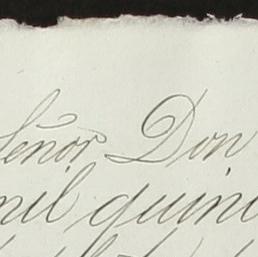 Señor Don
mil quini